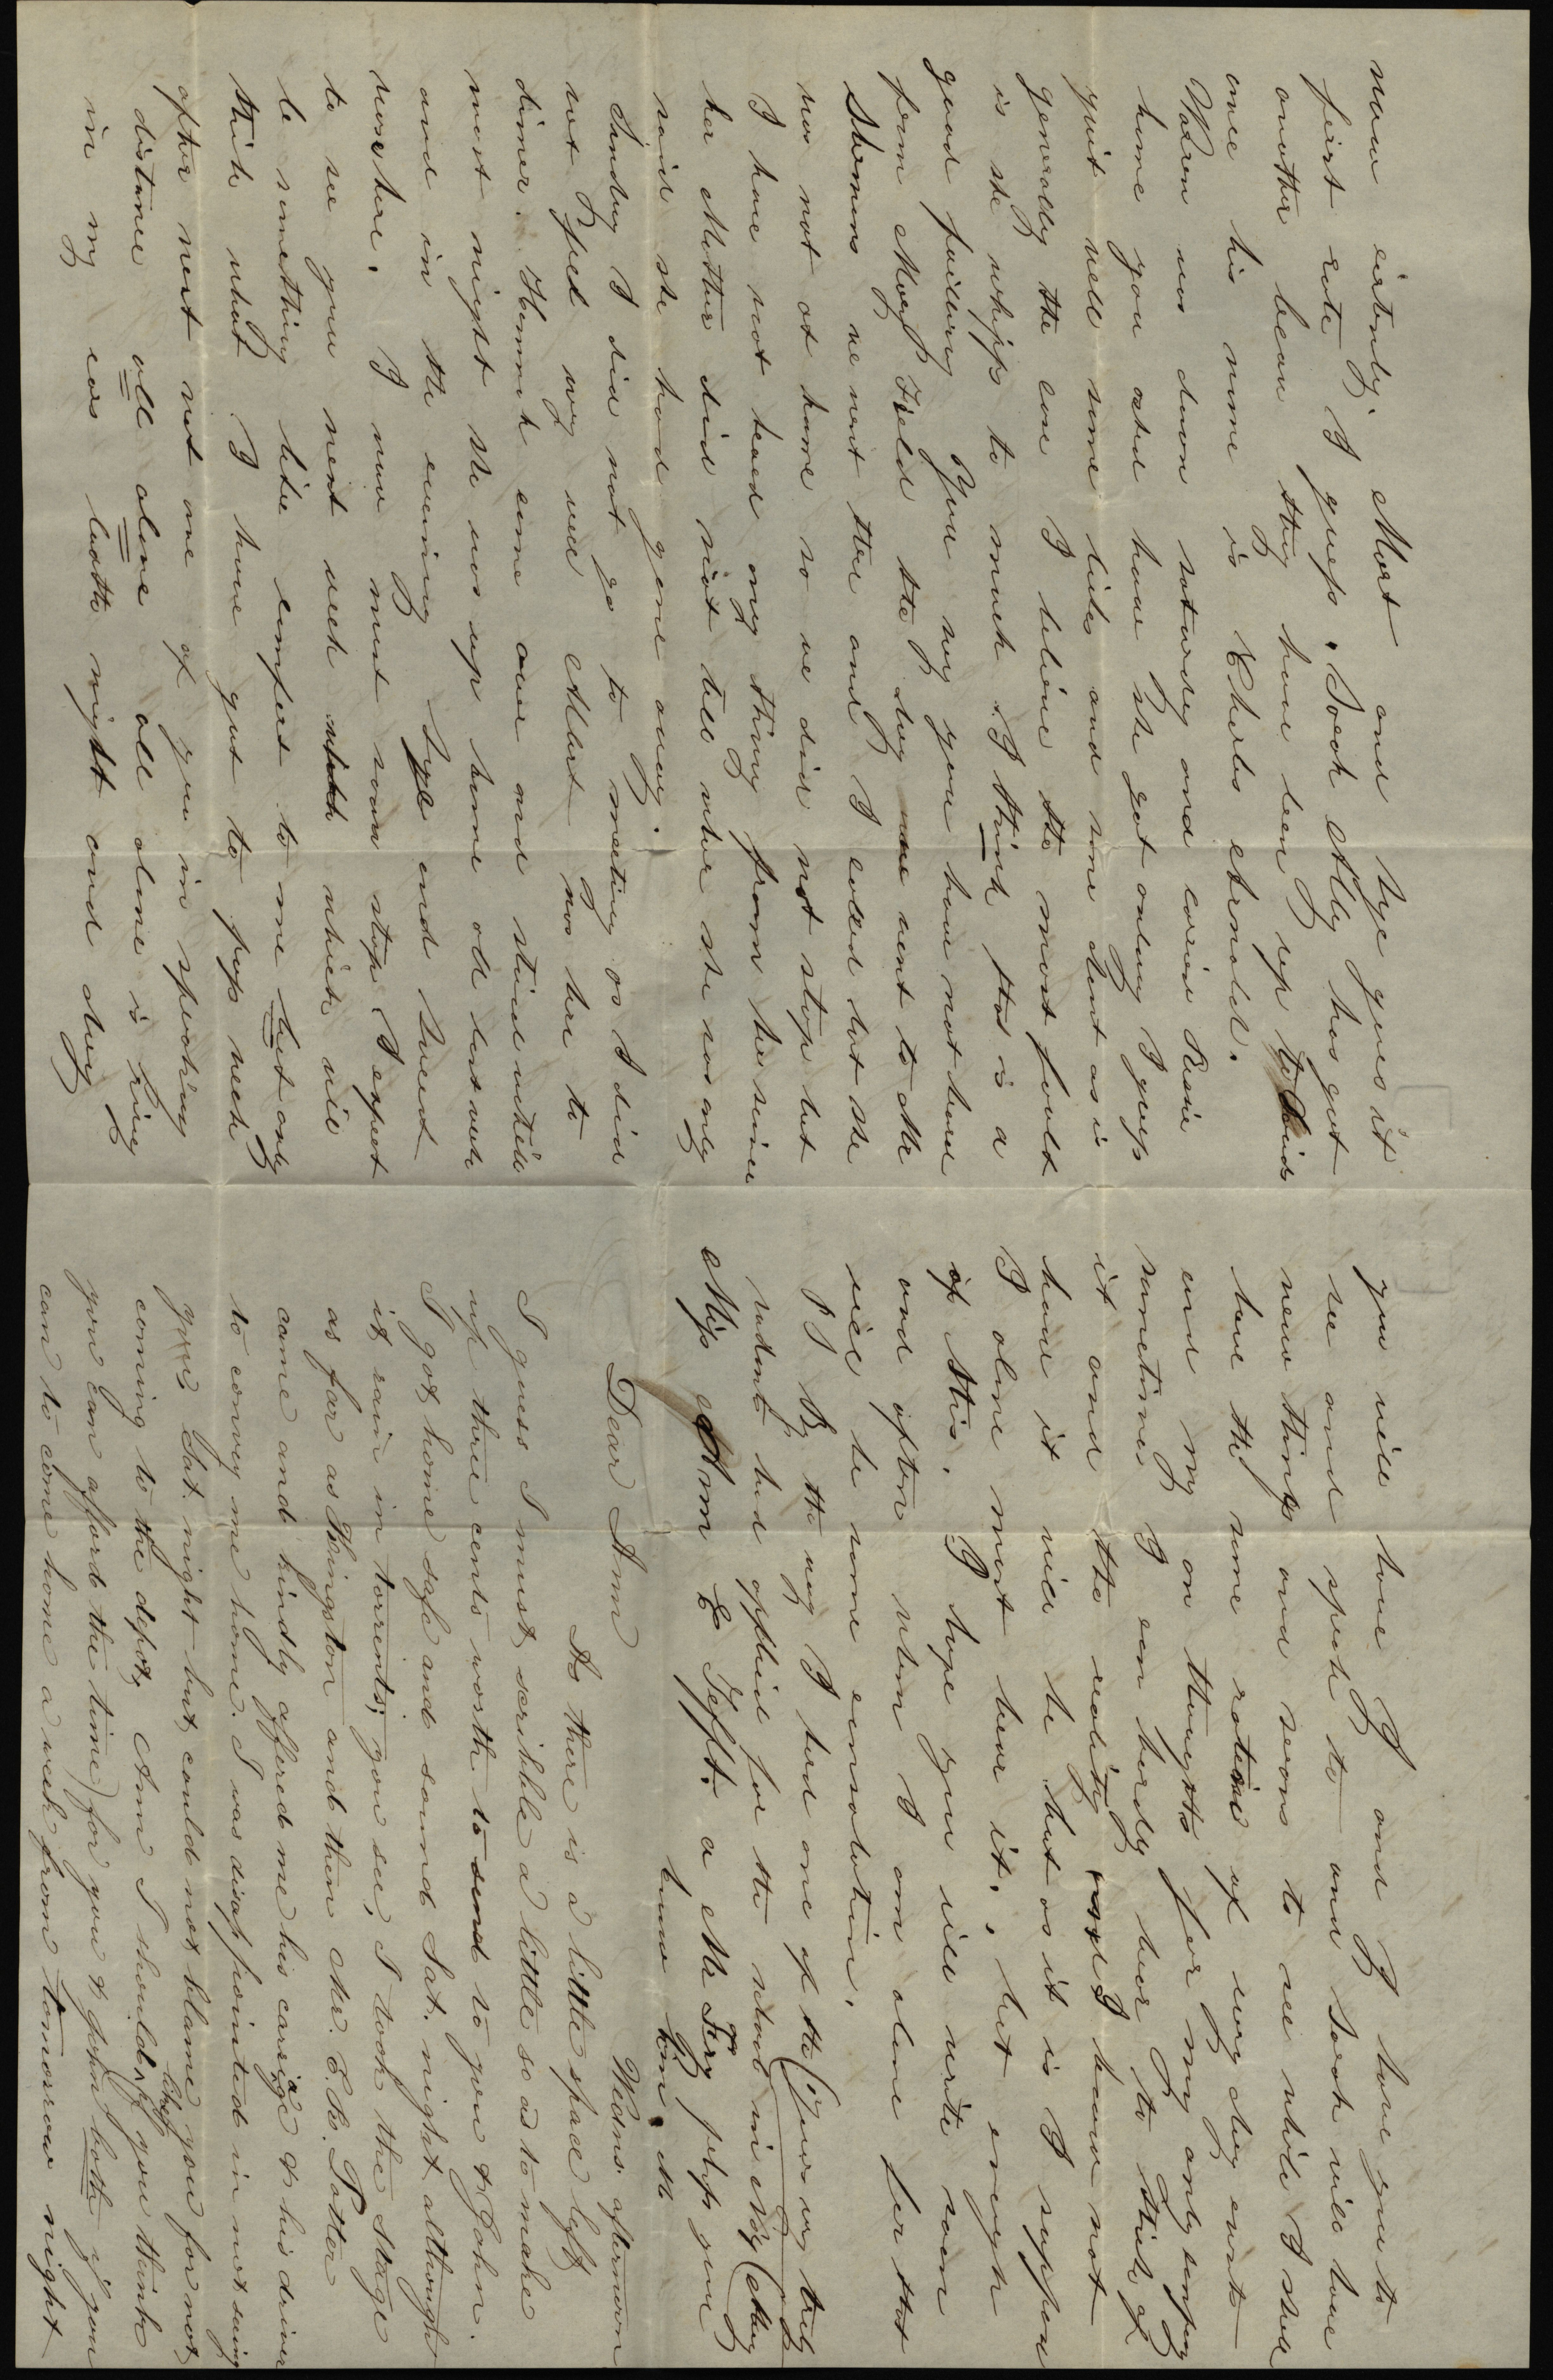 now certenly. Mart and Sye goes it
first rate I guess. Sarah Ally has got
another beau they have been up to Louis
once his name is Charles Arnold.
Waren was down saturday and carrie Rosie
home you ased how she got along I guess
quit well some likes and some dont as is
generaly the case I believe the most fault
is she whipps to much I think that is a
good failing You say you have not heard
from Mary Field the day we went to Mr
Shermans we went thar and I called but she
was not at home so we did not stop but
I have not heard any thing from her since
her Mother did not tell whar she was only
said she had gone away.
Sunday I did not go to meeting as I did
not feel very well Mart was here to
diner. Hannah come over and staid untill
most night she was up home all last week
and in the evening Sye and Sweet
was here. I now must soon stop I expect
to see you next week which will
be something like comfort to me but only
think what I have got to pass week
after next not one of you in speaking
distance all alone all alone is ring
in my ears both night and day
you will have J and J have you to
see and speak to and Sarah will have
new things and seans to see while I shall
have the same rotine of every day events
and my on thoughts for my only company
sometimes I can hardly bear to think of
it and the reality I know not
how it will be but as it is I suppose
I alone must bear it, but enough
of this. I hope you will write soon
and often when I am alone for that
will be some consolation.
P S By the way I had one of the
students had applied for the school in
Miss Ann E Tefft. a Mr Fry perhaps you
know him. M
Yours very truly
Mary
Dear Ann
Wedns. afternoon
As there is a little space left
I guess I must scribble a little so as to make
up three cents worth to send to you & John.
I got home safe and sound Sat. night although
it rain in torrents; you see, I took the stage
as far as Kingston and then Mr. E. R. Potter
came and kindly offered me his cariage & his driver
to convey me home. I was disappointed in not seeing
you Sat. night but could not blame you for not
coming to the depot, Ann I should like (if you think
you can afford the time) for you & John both if you
can to come home a week from tomorrow night